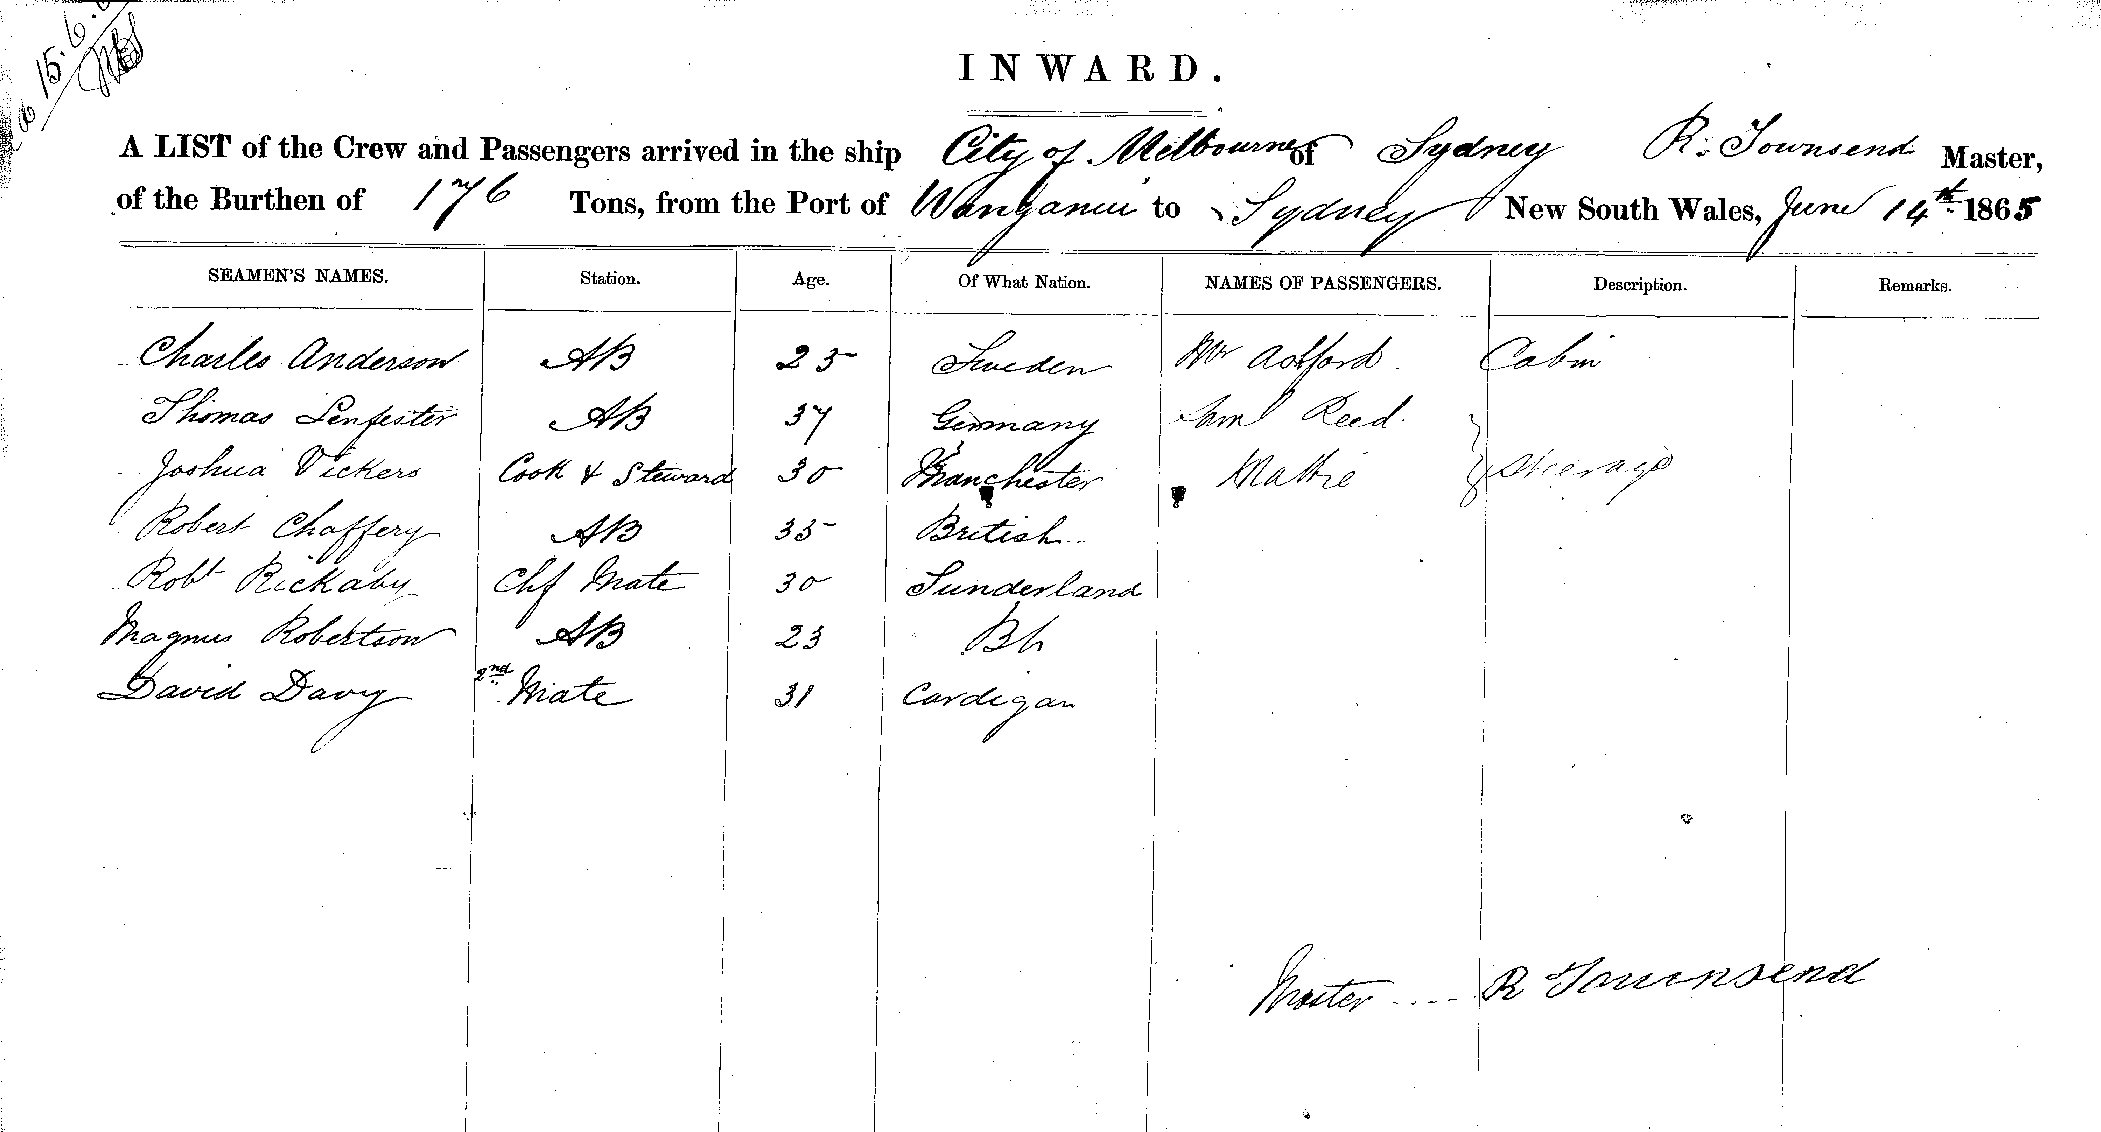 15.6.
INWARD.
A LIST of the Crew and Passengers arrived in the ship City of Melbourne of Sydney R. Townsend Master,
of the Burthen of 176 Tons, from the Port of Wanganui to Sydney New South Wales, June 14th 1865
SEAMEN'S NAMES. Station. Age. Of What Nation. NAMES OF PASSENGERS. Description. Remarks.
Charles Anderson AB 25 Sweden Mr Cabin
Thomas Lenfester AB 37 Germany Reed.
Joshua Vickers Cook & Steward 30 Manchester Steerage
Robert Chaffery AB 35 British
Robt Rickaby Chf Mate 30 Sunderland
Magnus Robertson AB 23 Bh
David Davy 2nd Mate 31 Cardigan
Master .... R Townsend